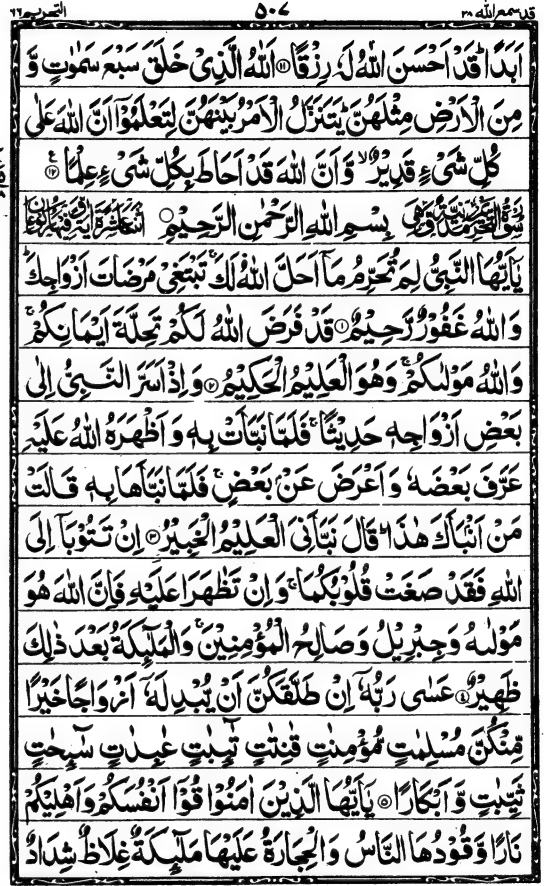 قد سمع الله ٢٨
٥٠٧
التحريم ٦٦
اَبَدًا ؕ قَدْ اَحْسَنَ اللّٰهُ لَهٗ رِزْقًا ﴿۱۱﴾ اَللّٰهُ الَّذِیْ خَلَقَ سَبْعَ سَمٰوٰتٍ وَّ
مِنَ الْاَرْضِ مِثْلَهُنَّ ؕ یَتَنَزَّلُ الْاَمْرُ بَیْنَهُنَّ لِتَعْلَمُوْۤا اَنَّ اللّٰهَ عَلٰی
كُلِّ شَیْءٍ قَدِیْرٌ ۙ وَّ اَنَّ اللّٰهَ قَدْ اَحَاطَ بِكُلِّ شَیْءٍ عِلْمًا ﴿۱۲﴾ ع
بِسْمِ اللّٰهِ الرَّحْمٰنِ الرَّحِیْمِ
یٰۤاَیُّهَا النَّبِیُّ لِمَ تُحَرِّمُ مَاۤ اَحَلَّ اللّٰهُ لَكَ ۚ تَبْتَغِیْ مَرْضَاتَ اَزْوَاجِكَ ؕ
وَ اللّٰهُ غَفُوْرٌ رَّحِیْمٌ ﴿۱﴾ قَدْ فَرَضَ اللّٰهُ لَكُمْ تَحِلَّةَ اَیْمَانِكُمْ ۚ
وَ اللّٰهُ مَوْلٰىكُمْ ۚ وَ هُوَ الْعَلِیْمُ الْحَكِیْمُ ﴿۲﴾ وَ اِذْ اَسَرَّ النَّبِیُّ اِلٰی
بَعْضِ اَزْوَاجِهٖ حَدِیْثًا ۚ فَلَمَّا نَبَّاَتْ بِهٖ وَ اَظْهَرَهُ اللّٰهُ عَلَیْهِ
عَرَّفَ بَعْضَهٗ وَ اَعْرَضَ عَنْۢ بَعْضٍ ۚ فَلَمَّا نَبَّاَهَا بِهٖ قَالَتْ
مَنْ اَنْۢبَاَكَ هٰذَا ؕ قَالَ نَبَّاَنِیَ الْعَلِیْمُ الْخَبِیْرُ ﴿۳﴾ اِنْ تَتُوْبَاۤ اِلَی
اللّٰهِ فَقَدْ صَغَتْ قُلُوْبُكُمَا ۚ وَ اِنْ تَظٰهَرَا عَلَیْهِ فَاِنَّ اللّٰهَ هُوَ
مَوْلٰىهُ وَ جِبْرِیْلُ وَ صَالِحُ الْمُؤْمِنِیْنَ ۚ وَ الْمَلٰٓىِٕكَةُ بَعْدَ ذٰلِكَ
ظَهِیْرٌ ﴿۴﴾ عَسٰی رَبُّهٗۤ اِنْ طَلَّقَكُنَّ اَنْ یُّبْدِلَهٗۤ اَزْوَاجًا خَیْرًا
مِّنْكُنَّ مُسْلِمٰتٍ مُّؤْمِنٰتٍ قٰنِتٰتٍ تٰٓىِٕبٰتٍ عٰبِدٰتٍ سٰٓىِٕحٰتٍ
ثَیِّبٰتٍ وَّ اَبْكَارًا ﴿۵﴾ یٰۤاَیُّهَا الَّذِیْنَ اٰمَنُوْا قُوْۤا اَنْفُسَكُمْ وَ اَهْلِیْكُمْ
نَارًا وَّ قُوْدُهَا النَّاسُ وَ الْحِجَارَةُ عَلَیْهَا مَلٰٓىِٕكَةٌ غِلَاظٌ شِدَادٌ